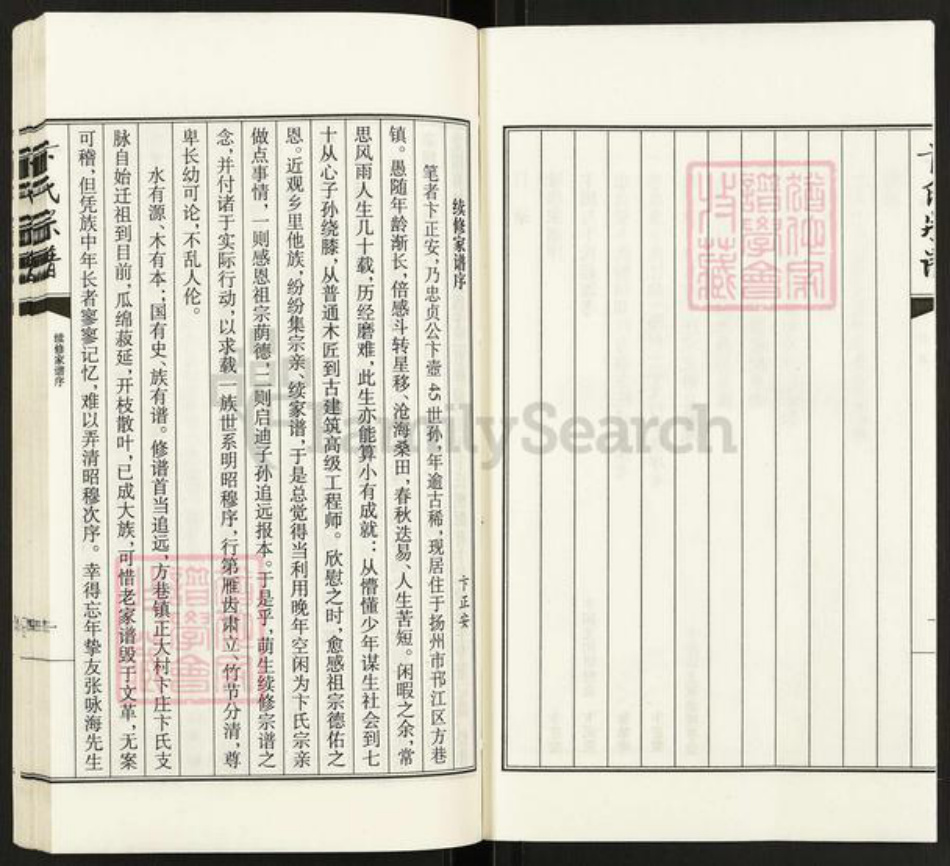 续修家谱序
卞正安
笔者卞正安，乃忠贞公卞壸45世孙，年逾古稀，现居住于扬州市邗江区方巷
镇。愚随年龄渐长，倍感斗转星移、沧海桑田，春秋迭易、人生苦短。闲暇之余，常
思风雨人生几十载，历经磨难，此生亦能算小有成就：从懵懂少年谋生社会到七
十从心子孙绕膝，从普通木匠到古建筑高级工程师。欣慰之时，愈感祖宗德佑之
恩。近观乡里他族，纷纷集宗亲、续家谱，于是总觉得当利用晚年空闲为卞氏宗亲
做点事情，一则感恩祖宗荫德，二则启迪子孙追远报本。于是乎，萌生续修宗谱之
念，并付诸于实际行动，以求载一族世系明昭穆序，行第雁齿肃立、竹节分清，尊
卑长幼可论，不乱人伦。
水有源、木有本；国有史、族有谱。修谱首当追远，方巷镇正大村卞庄卞氏支
脉自始迁祖到目前，瓜绵菽延，开枝散叶，已成大族，可惜老家谱毁于文革，无案
可稽，但凭族中年长者寥寥记忆，难以弄清昭穆次序。幸得忘年挚友张咏海先生
续修家谱序
FamilySearch